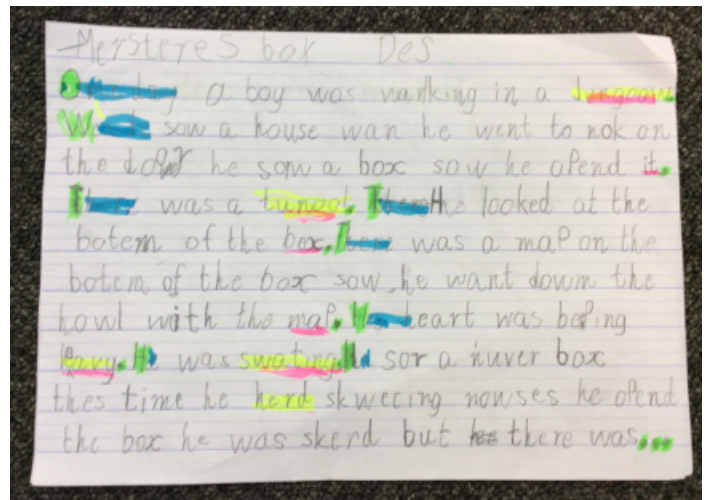 Mersteres box Des
One day a boy was wanking in a dungoown
When sow a house wan he went to nok on
the door he sow a box sow he opend it.
There was a tunnot. then he looked at the
botem of the box. there was a map on the
botem of the box sow he want down the
howl with the map. His heart was beping
He was swating. He sor a nuver box
thes time he herd skwecing nowses he opend
the box he was skerd but there was...